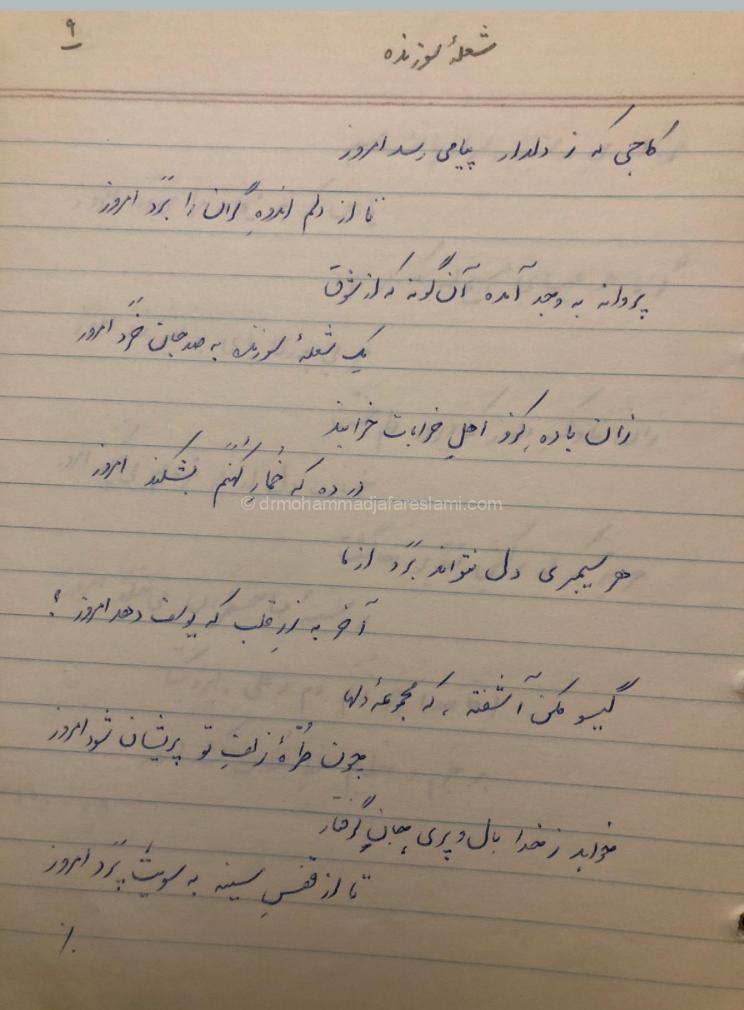 ۹
شعلهٔ سوزنده
کاجی که ز دلدار پیامی رسد امروز
تا از دلم اندوهِ گران را ببَرَد امروز
پروانه به وجد آمده آن گونه که از شوق
یک شعلهٔ سوزنده به صد جان خَرَد امروز
زان باده کزو اهلِ خرابات خرابند
در ده که خُمارِ کُهَنَم بشکند امروز
هر سیمبری دل نتواند بَرَد از ما
آخر به زرِ قلب که یوسف دهد امروز؟
گیسو مکن آشفته، که مجموعهٔ دلها
چون طُرّهٔ زلفِ تو پریشان شود امروز
خواهد ز خدا بال و پری جانِ گرفتار
تا از قفسِ سینه به سویت بپَرَد امروز
© drmohammadjafareslami.com